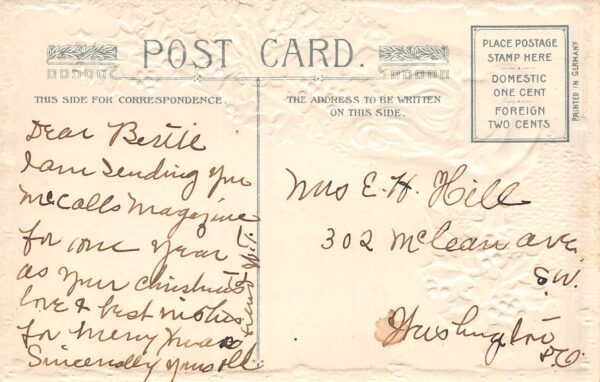 POST CARD.
THIS SIDE FOR CORRESPONDENCE.
THE ADDRESS TO BE WRITTEN
ON THIS SIDE.
PLACE POSTAGE
STAMP HERE
DOMESTIC
ONE CENT
FOREIGN
TWO CENTS
PRINTED IN GERMANY
Dear Bertie
I am sending you
McCalls Magazine
for one year
as your Christmas
love & best wishes
for Merry Xmas
Sincerely yours
Mrs E. H. Hill
302 McLean ave.
S.W.
Washington
D.C.